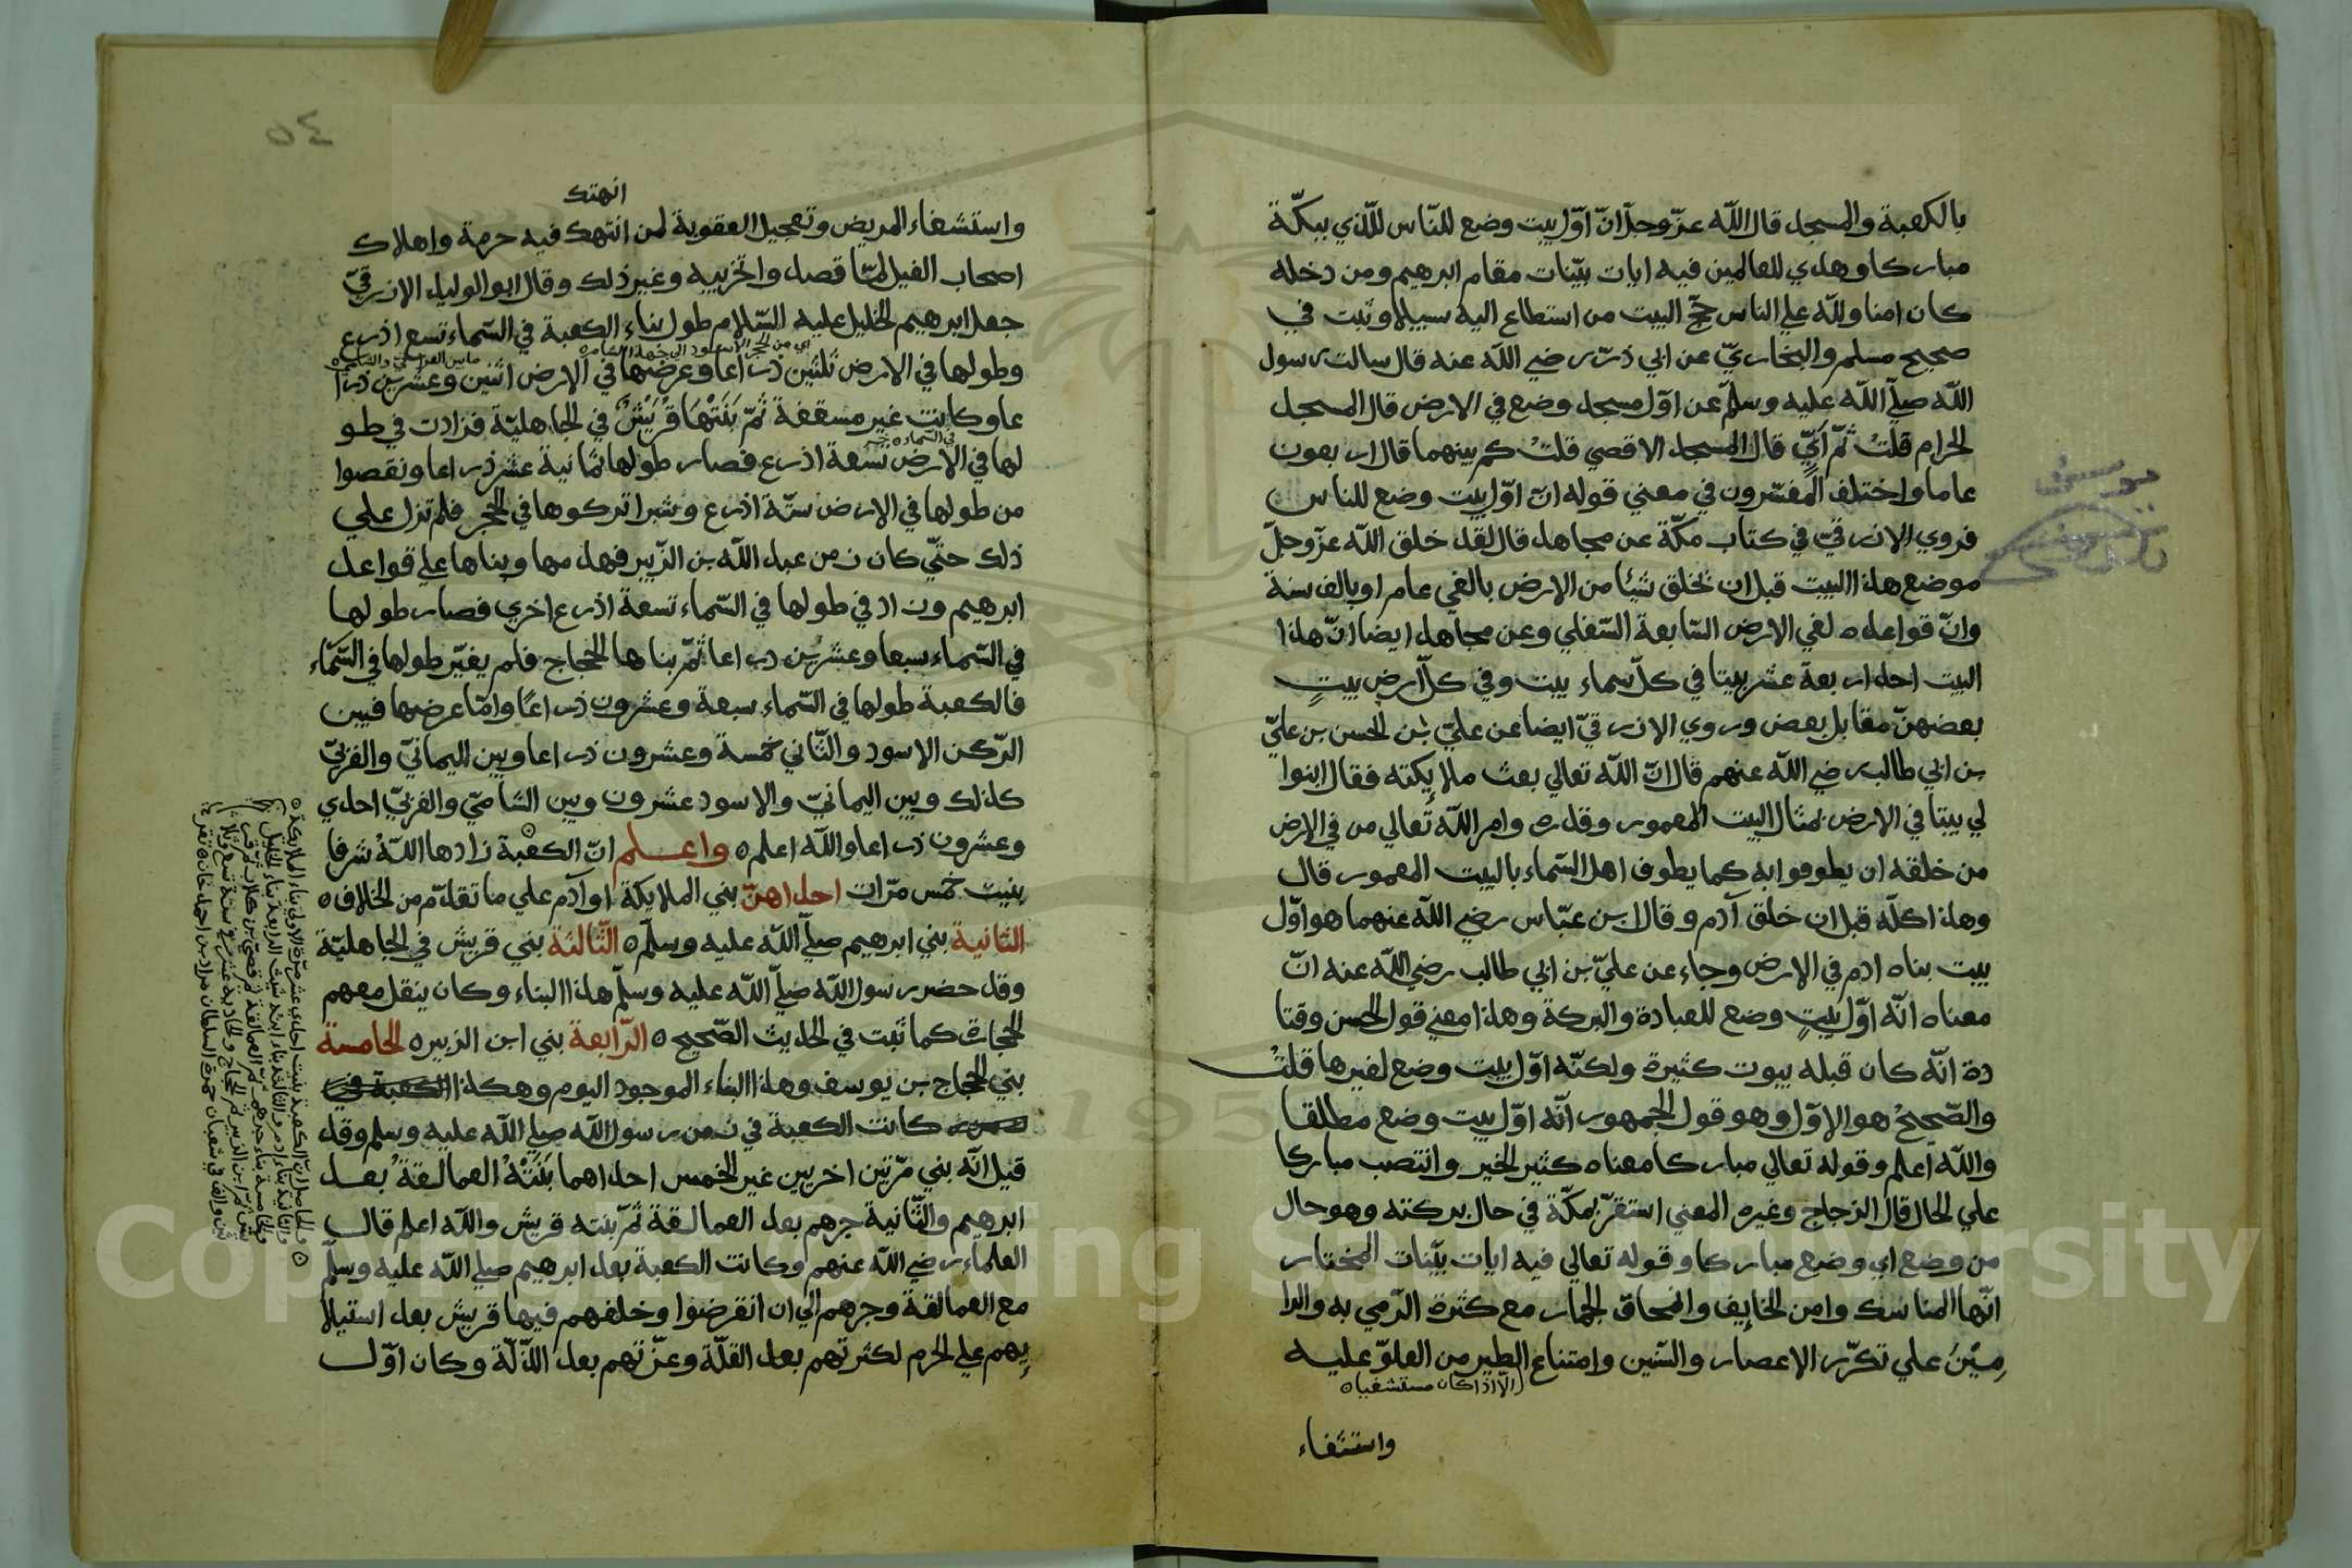 بالكعبة والمسجد قال الله عزّ وجلّ انّ اوّل بيت وضع للنّاس للّذي ببكّة
مباركا وهدي للعالمين فيه ايات بيّنات مقام ابرهيم ومن دخله
كان امنا ولله علي الناس حجّ البيت من استطاع اليه سبيلا وثبت في
صحيح مسلم والبخاريّ عن ابي ذرّ رضي الله عنه قال سالت رسول
الله صلّي الله عليه وسلّم عن اوّل مسجد وضع في الارض قال المسجد
الحرام قلت ثمّ ايّ قال المسجد الاقصي قلت كم بينهما قال اربعون
عاما واختلف المفسّرون في معني قوله انّ اوّل بيت وضع للناس
فروي الازرقيّ في كتاب مكّة عن مجاهد قال لقد خلق الله عزّ وجلّ
موضع هذا البيت قبل ان يخلق شيئا من الارض بالفي عام او بالف سنة
وانّ قواعده لفي الارض السّابعة السّفلي وعن مجاهد ايضا انّ هذا
البيت احد اربعة عشر بيتا في كلّ سماء بيت وفي كلّ ارض بيتٍ
بعضهنّ مقابل بعض وروي الازرقيّ ايضا عن عليّ بن الحسن بن عليّ
بن ابي طالب رضي الله عنهم قال انّ الله تعالي بعث ملايكته فقال ابنوا
لي بيتا في الارض بمثال البيت المعمور وقدره وامر الله تعالي من في الارض
من خلقه ان يطوفوا به كما يطوف اهل السّماء بالبيت المعمور قال
وهذا كلّه قبل ان خلق آدم وقال ابن عبّاس رضي الله عنهما هو اوّل
بيت بناه ادم في الارض وجاء عن عليّ بن ابي طالب رضي الله عنه انّ
معناه انّه اوّل بيتٍ وضع للعبادة والبركة وهذا معني قول الحسن وقتا
دة انّه كان قبله بيوت كثيرة ولكنّه اوّل بيت وضع لغيرها قلتُ
والصّحيحُ هو الاوّل وهو قول الجمهور انّه اوّل بيت وضع مطلقا
والله اعلم وقوله تعالي مباركا معناه كثير الخير وانتصب مباركا
علي الحال قال الزجاج وغيره المعني استقرّ بمكّة في حال بركته وهو حال
من وضع اي وضع مباركا وقوله تعالي فيه ايات بيّنات المختار
انّها المناسك وامن الخايف وانمحاق الجمار مع كثرة الرّمي به والرا
مِيْنَ علي تكرّر الاعصار والسّنين وامتناع الطير من العلوّ عليه
الّا اذا كان مستشفيا
واستشفاء
٥٤
انهتك
واستشفاء المريض وتعجيل العقوبة لمن انتهك فيه حرمة واهلاك
اصحاب الفيل لمّا قصد واتخريبه وغير ذلك وقال ابو الوليد الازرقيّ
جعل ابرهيم الخليل عليه السّلام طول بناء الكعبة في السّماء تسع اذرع
اي من الحجر الاسود الي جهة الشام
وطولها في الارض ثلثين ذراعا وعرضها في الارض اثنين وعشرين ذرا
عا وكانت غير مسقفة ثمّ بَنَتْهَا قُرَيْشٌ في الجاهليّة فزادت في طو
في السّماء
لها في الارض تسعة اذرع فصار طولها ثمانية عشر ذراعا ونقصوا
من طولها في الارض ستّة اذرع وشبرا تركوها في الحجر فلم تزل علي
ذلك حتّي كان زمن عبد الله بن الزّبير فهدمها وبناها علي قواعد
ابرهيم وزاد في طولها في السّماء تسعة اذرع اخري فصار طولها
في السّماء سبعا وعشرين ذراعا ثمّ بناها الحجّاج فلم يغيّر طولها في السّماء
فالكعبة طولها في السّماء سبعة وعشرون ذراعًا وامّا عرضها فبين
الرّكن الاسود والثّاني خمسة وعشرون ذراعا وبين اليمانيّ والغربيّ
كذلك وبين اليمانيّ والاسود عشرون وبين الشاميّ والغربيّ احدي
وعشرون ذراعا والله اعلم واعلم انّ الكعبة زادها الله شرفا
بنيت خمس مرّات احداهنّ بني الملايكة او آدم علي ما تقدّم من الخلاف
الثانية بني ابرهيم صلّي الله عليه وسلّم الثّالثة بني قريش في الجاهليّة
وقد حضر رسول الله صلّي الله عليه وسلّم هذا البناء وكان ينقل معهم
الحجارة كما ثبت في الحديث الصّحيح الرّابعة بني ابن الزبير الخامسة
بني الحجّاج بن يوسف وهذا البناء الموجود اليوم وهكذا الكعبة في
كانت الكعبة في زمن رسول الله صلي الله عليه وسلم وقد
قيل انّه بني مرّتين اخريين غير الخمس احداهما بَنَتْهُ العمالقةُ بعد
ابرهيم والثّانية جرهم بعد العمالقة ثمّ بنته قريش والله اعلم قال
العلماء رضي الله عنهم وكانت الكعبة بعد ابرهيم صلي الله عليه وسلّم
مع العمالقة وجرهم الي ان انقرضوا وخلفهم فيها قريش بعد استيلا
يهم علي الحرم لكثرتهم بعد القلّة وعزّتهم بعد الذّلّة وكان اوّل
والحاصل انّ الكعبة بنيت احدي عشر مرّة الاولي بناء الملايكة
والثانية بناء ادم والثالثة بناء ابنه شيث الرابعة بناء الخليل
والخامسة بناء جرهم ثمّ العمالقة ثمّ قصيّ بن كلاب ثمّ قر
يش ثمّ ابن الزبير ثمّ الحجّاج والحادية عشر في سنة تسع وثلا
ثين والف في شعبان حضرة السلطان مراد بن احمد خان